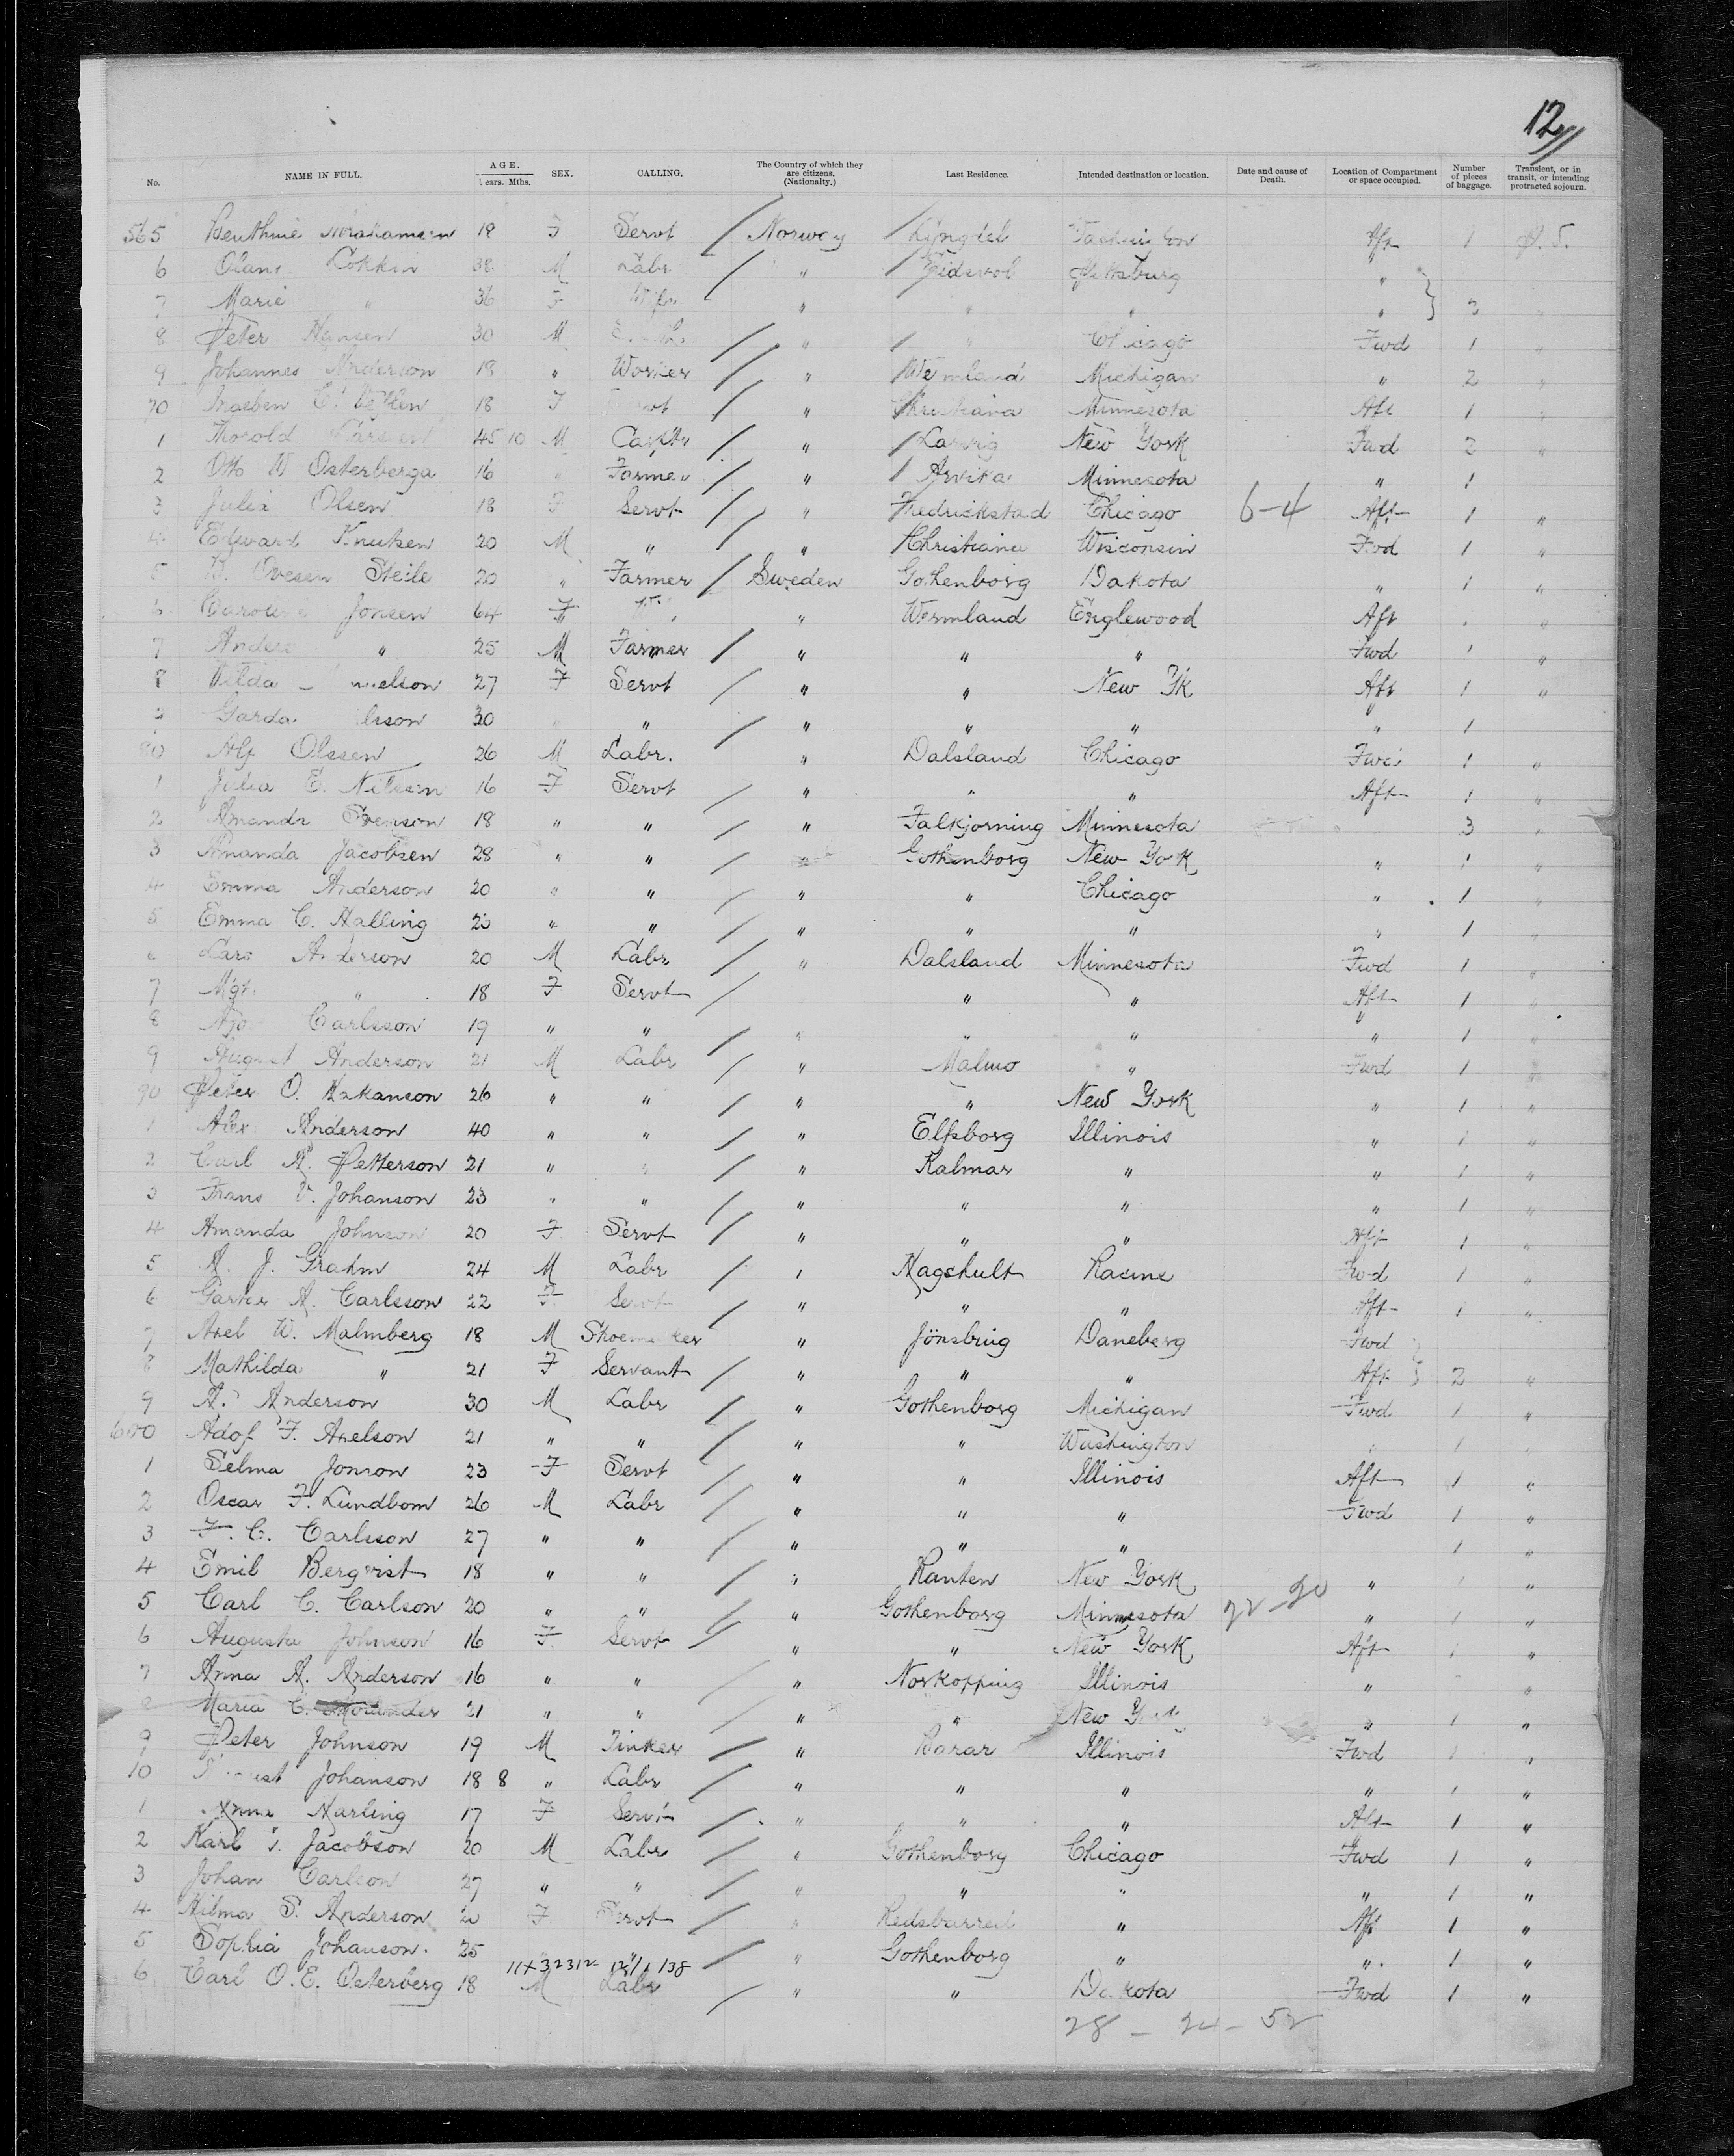 12//
No. NAME IN FULL. AGE. Years. Mths. SEX. CALLING. The Country of which they are citizens. (Nationalty.) Last Residence. Intended destination or location. Date and cause of Death. Location of Compartment or space occupied. Number of pieces of baggage. Transient, or in transit, or intending protracted sojourn.
565 18 F Servt / Norway / Aft 1 P. S.
6 38 M Labr / " / Eidsvol Pittsburg " }
7 Marie " 36 F Wife " " " " } 3 "
8 Peter Hansen 30 M / " / " Chicago Fwd 1 "
9 Johannes Anderson 18 " Worker / " / Michigan " 2 "
70 18 F / " / Christiana Minnesota Aft 1 "
1 Thorold 45 10 M / " / Larvig New York Fwd 2 "
2 Otto W Osterberga 16 " Farmer / " / Arvika Minnesota " 1
3 Julia Olsen 18 F Servt / " / Fredrickstad Chicago 6-4 Aft 1 "
4 Edward Knutsen 20 M " " / Christiana Wisconsin Fwd 1 "
5 Ovesen Steile 20 " Farmer / Sweden Gothenborg Dakota " 1 "
6 Jonsen 64 F " Wermland Englewood Aft "
7 Anders " 25 M Farmer / " " " Fwd 1 "
8 27 F Servt / " " New Yk Aft 1 "
9 30 " " / " " " " 1
80 Olssen 26 M Labr. " Dalsland Chicago Fwd 1 "
1 Julia E. Nilssen 16 F Servt / " " " Aft 1 "
2 Amanda Svenson 18 " " / " Falkjorning Minnesota 3 "
3 Amanda Jacobsen 28 " " / Gothenborg New York " 1 "
4 Emma Anderson 20 " " / " " Chicago " 1 "
5 Emma C. Halling " " / " " " " 1 "
6 Lars Anderson 20 M Labr / " Dalsland Minnesota Fwd 1 "
7 " 18 F Servt / " " Aft 1 "
8 Carlsson 19 " " / " " " " 1 "
9 August Anderson 21 M Labr / " Malmo " Fwd 1 "
90 Peter O. Hakanson 26 " " / " " New York " 1 "
1 Alex Anderson 40 " " / " Elfsborg Illinois " 1 "
2 Carl A. Petterson 21 " " / " Kalmar " " 1 "
3 Frans V. Johanson 23 " " / " " " " 1 "
4 Amanda Johnson 20 F Servt / " " " Aft 1 "
5 A. J. Grahm 24 M Labr / " Hagshult Racine Fwd 1 "
6 A. Carlsson 22 F Servt / " " " Aft 1 "
7 Axel W. Malmberg 18 M Shoemaker " Jönsbrug Daneberg Fwd }
8 Mathilda " 21 F Servant / " " " Aft } 2 "
9 A. Anderson 30 M Labr / " Gothenborg Michigan Fwd 1 "
600 Adof F. Axelson 21 " " / " " Washington " 1 "
1 Selma Jonson 23 F Servt / " " Illinois Aft 1 "
2 Oscar F. Lundbom 26 M Labr / " " " Fwd 1 "
3 F. C. Carlsson 27 " " / " " " 1 "
4 Emil Bergvist 18 " " / " Ranten New York " 1 "
5 Carl C. Carlson 20 " " / " Gothenborg Minnesota " 1 "
6 Augusta Johnson 16 F Servt / " " New York Aft 1 "
7 Anna A. Anderson 16 " " / " Norkopping Illinois " "
8 Maria C. 21 " " / " " New York " 1 "
9 Peter Johnson 19 M Tinker / " Illinois Fwd 1 "
10 Johanson 18 8 " Labr / " " " " 1 "
1 Anna Harling 17 F Servt / " " " Aft 1 "
2 Karl Jacobson 20 M Labr / " Gothenborg Chicago Fwd 1 "
3 Johan Carlson 27 " " / " " " " 1 "
4 Hilma S. Anderson F Servt / " " Aft 1 "
5 Sophia Johanson. 25 " / " Gothenborg " " 1 "
6 Carl O. E. Osterberg 18 M Labr / " " Dakota Fwd 1 "